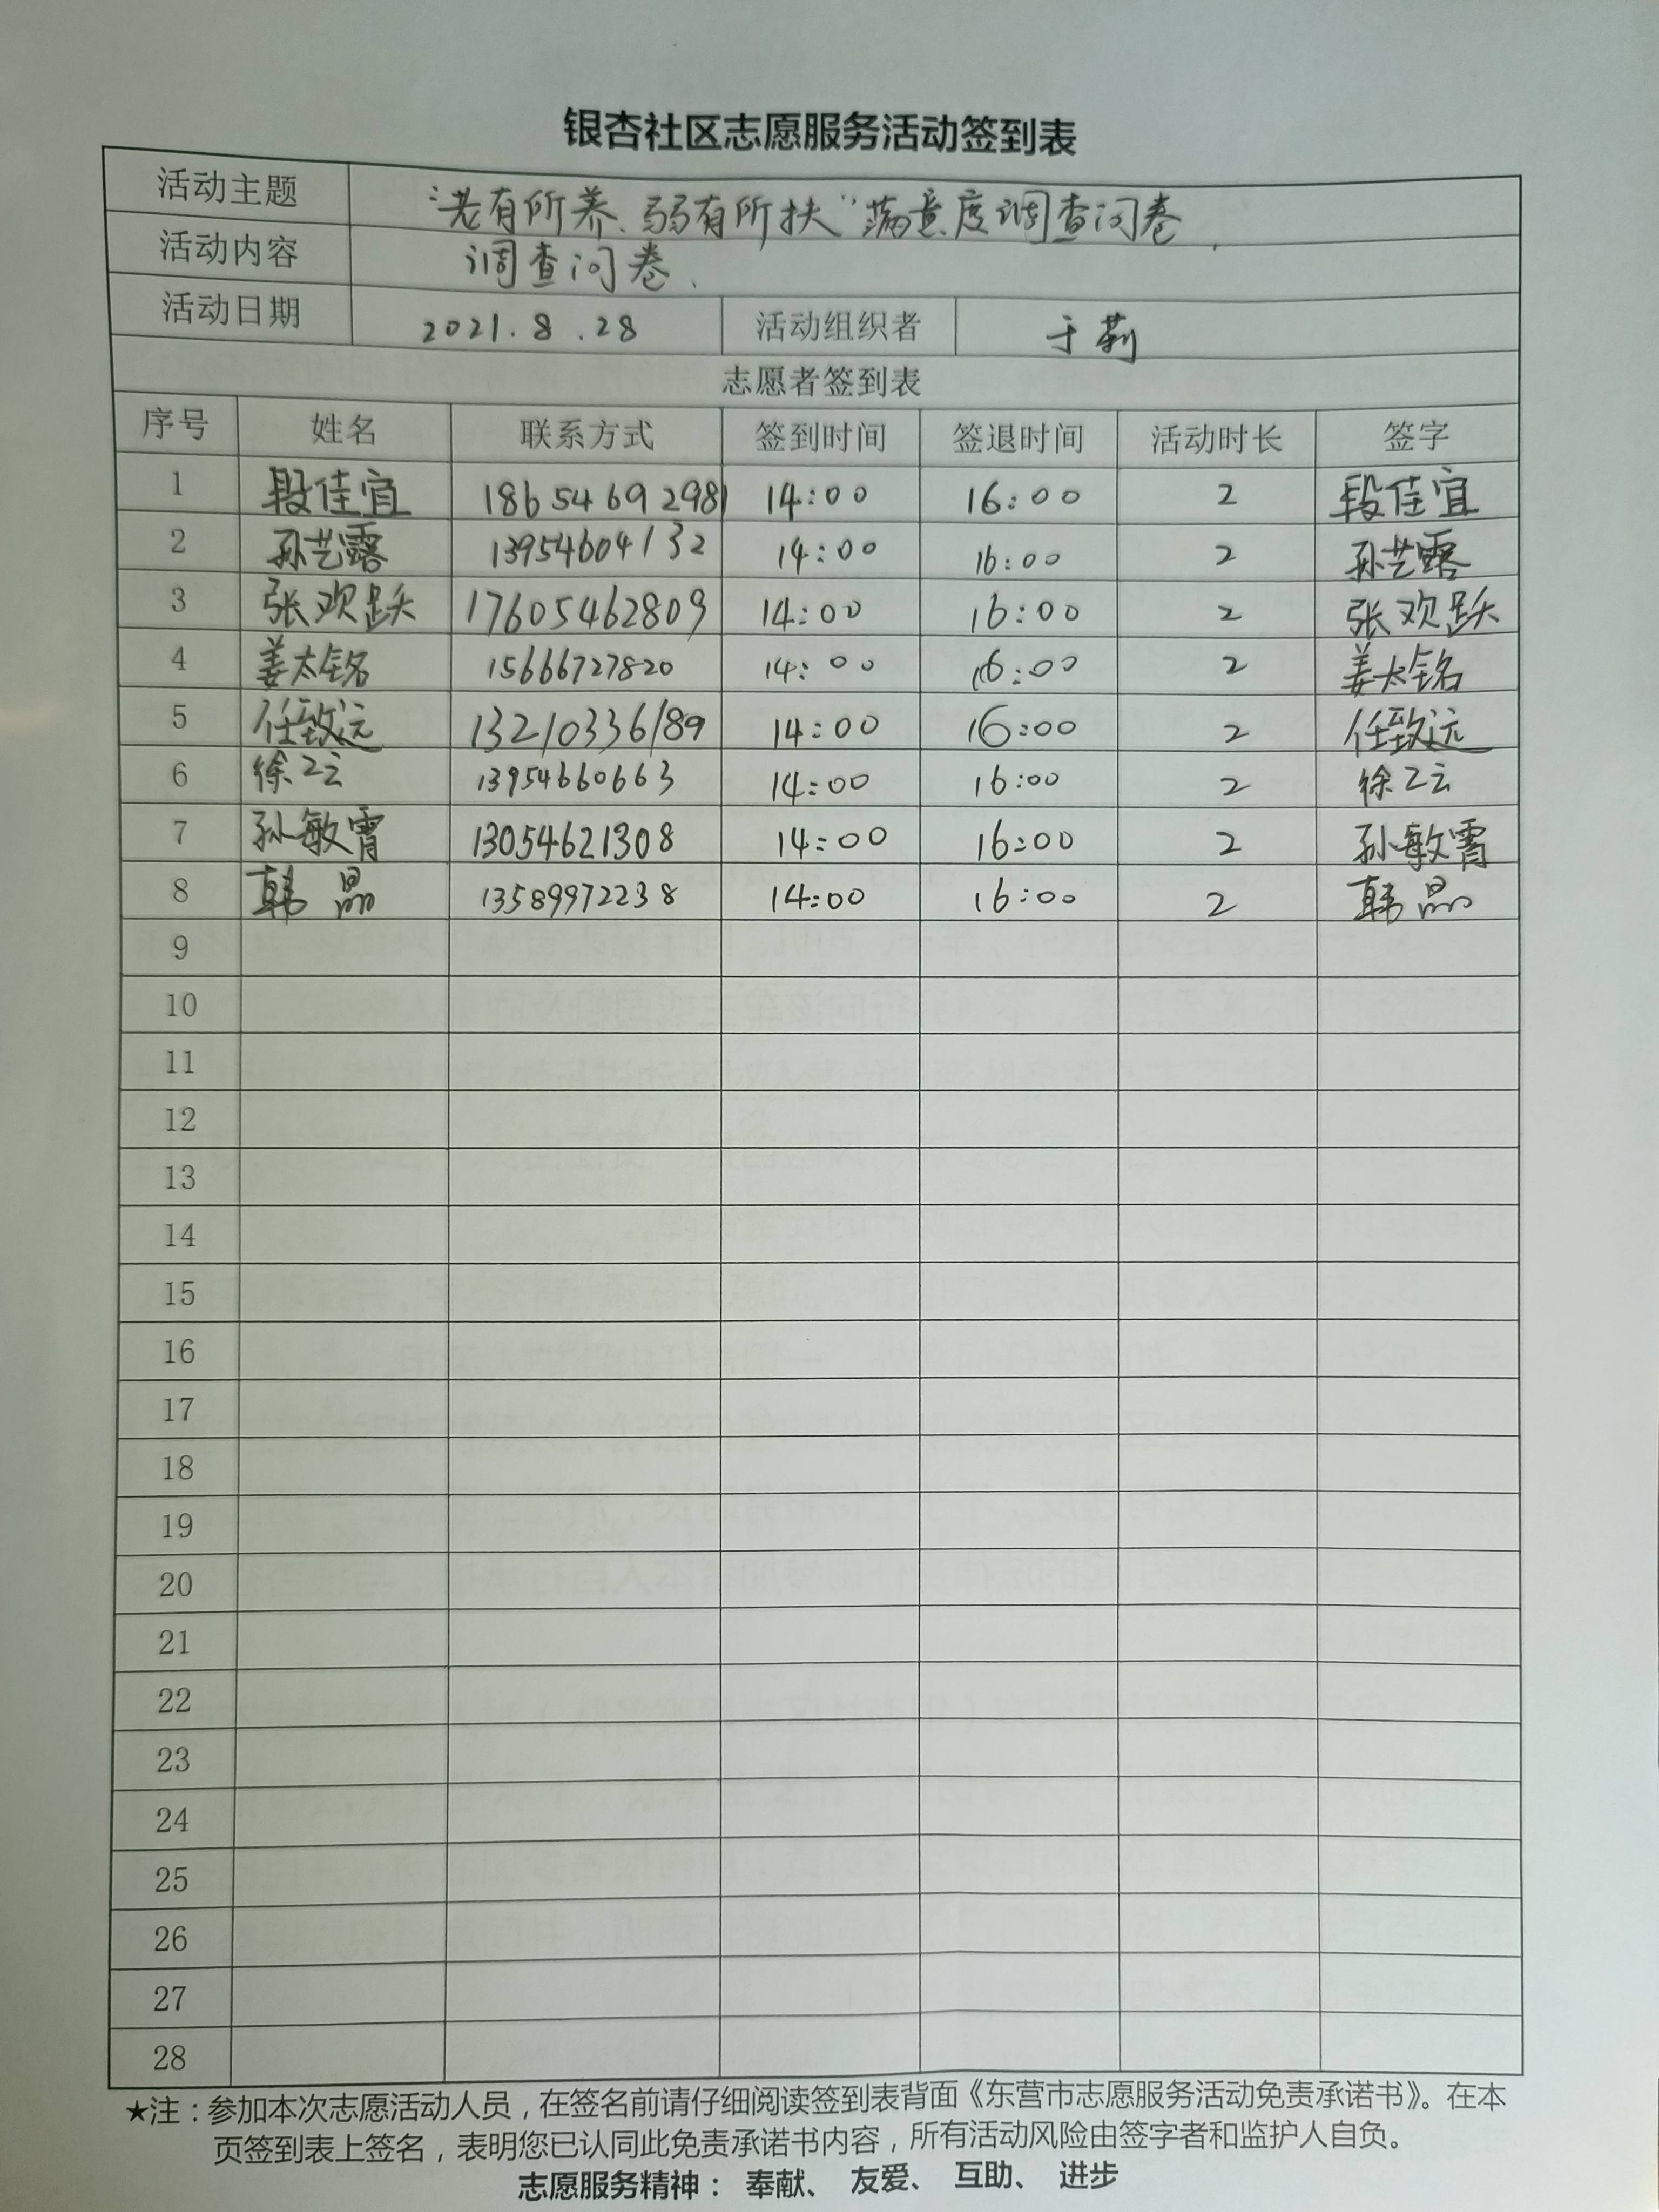 银杏社区志愿服务活动签到表
活动主题 “老有所养、弱有所扶”满意度调查问卷.
活动内容 调查问卷.
活动日期 2021.8.28 活动组织者 于莉
志愿者签到表
序号 姓名 联系方式 签到时间 签退时间 活动时长 签字
1 段佳宜 18654692981 14:00 16:00 2 段佳宜
2 孙艺露 13954604132 14:00 16:00 2 孙艺露
3 张欢跃 17605462809 14:00 16:00 2 张欢跃
4 姜太铭 15666727820 14:00 16:00 2 姜太铭
5 任致远 13210336189 14:00 16:00 2 任致远
6 徐乙云 13954660663 14:00 16:00 2 徐乙云
7 孙敏霄 13054621308 14:00 16:00 2 孙敏霄
8 韩晶 13589972238 14:00 16:00 2 韩晶
9
10
11
12
13
14
15
16
17
18
19
20
21
22
23
24
25
26
27
28
★注：参加本次志愿活动人员，在签名前请仔细阅读签到表背面《东营市志愿服务活动免责承诺书》。在本
页签到表上签名，表明您已认同此免责承诺书内容，所有活动风险由签字者和监护人自负。
志愿服务精神： 奉献、 友爱、 互助、 进步